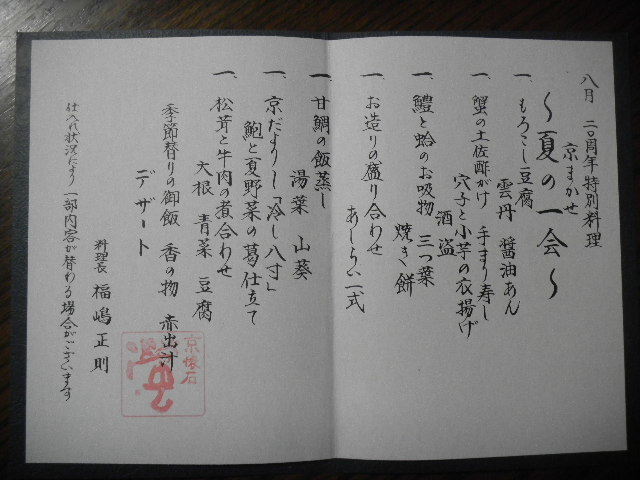 八月　二〇周年特別料理
京まかせ
～夏の一会～
一、もろこし豆腐
雲丹　醤油あん
一、蟹の土佐酢がけ　手まり寿し
穴子と小芋の衣揚げ
酒盗
一、鱧と蛤のお吸物　三つ葉
焼き餅
一、お造りの盛り合わせ
あしらい一式
一、甘鯛の飯蒸し
湯葉　山葵
一、京だより「冷し八寸」
鮑と夏野菜の葛仕立て
一、松茸と牛肉の煮合わせ
大根　青菜　豆腐
季節替りの御飯　香の物　赤出汁
デザート
料理長　福嶋正則
仕入れ状況により一部内容が替わる場合がございます
京懐石